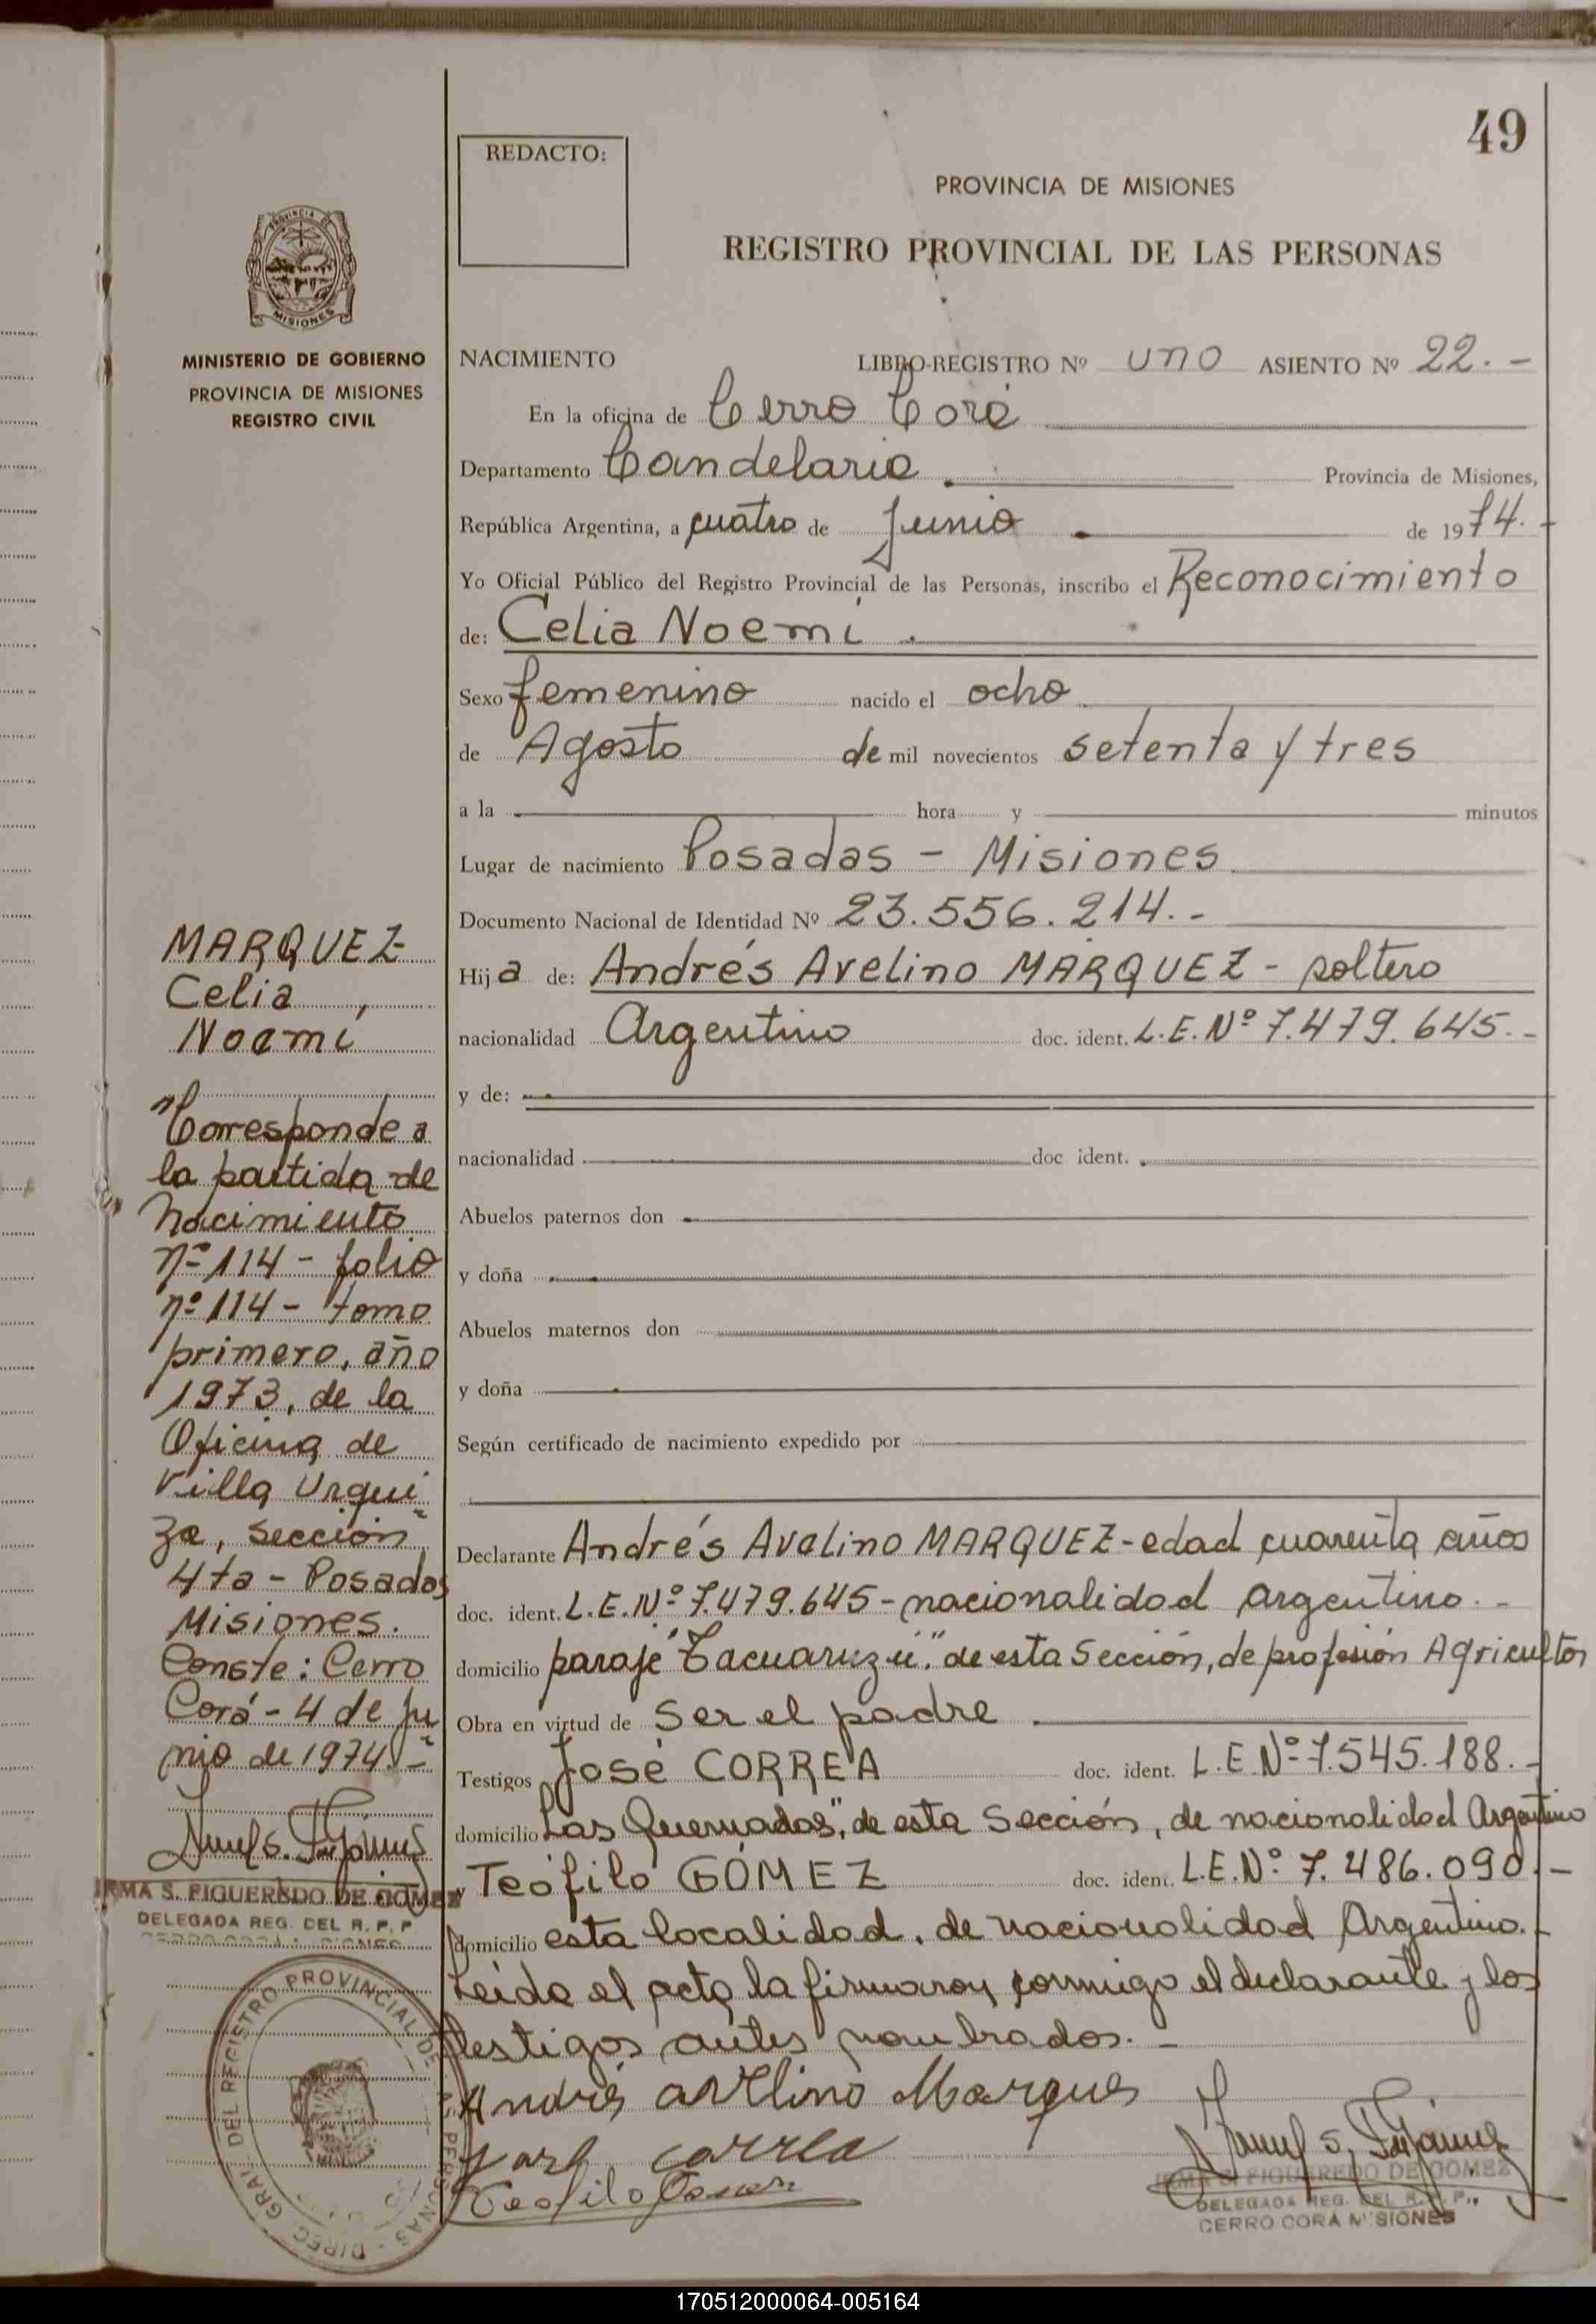 49
REDACTO:
PROVINCIA DE MISIONES
REGISTRO PROVINCIAL DE LAS PERSONAS
PROVINCIA DE
MISIONES
MINISTERIO DE GOBIERNO
PROVINCIA DE MISIONES
REGISTRO CIVIL
NACIMIENTO LIBRO-REGISTRO Nº uno ASIENTO Nº 22.-
En la oficina de Cerro Corá
Departamento Candelaria Provincia de Misiones,
República Argentina, a cuatro de Junio de 1974.-
Yo Oficial Público del Registro Provincial de las Personas, inscribo el Reconocimiento
de: Celia Noemí
Sexo femenino nacido el ocho
de Agosto de mil novecientos setenta y tres
a la hora y minutos
Lugar de nacimiento Posadas - Misiones
Documento Nacional de Identidad Nº 23.556.214.-
Hija de: Andrés Avelino MARQUEZ - soltero
nacionalidad Argentino doc. ident. L.E.Nº 7.479.645.-
y de:
nacionalidad doc ident.
Abuelos paternos don
y doña
Abuelos maternos don
y doña
Según certificado de nacimiento expedido por
Declarante Andrés Avelino MARQUEZ - edad cuarenta años
doc. ident. L.E.Nº 7.479.645 - nacionalidad argentino.-
domicilio paraje "Tacuaruzú" de esta Sección, de profesión Agricultor
Obra en virtud de ser el padre
Testigos José CORREA doc. ident. L.E.Nº 7.545.188.-
domicilio Las Quemadas", de esta Sección, de nacionalidad Argentino
y Teófilo GÓMEZ doc. ident. L.E.Nº 7.486.090.-
domicilio esta localidad, de nacionalidad Argentino.-
Leída el acta la firmaron conmigo el declarante y los
testigos antes nombrados.-
Andrés avelino Marques
José correa
Teofilo Gomez
IRMA S. FIGUEREDO DE GOMEZ
DELEGADA REG. DEL R. P. P.
CERRO CORÁ MISIONES
MARQUEZ
Celia,
Noemí
"Corresponde a
la partida de
nacimiento
nº 114 - folio
nº 114 - tomo
primero, año
1973, de la
Oficina de
Villa Urqui
za, sección
4ta - Posadas
Misiones.
Conste: Cerro
Corá - 4 de Ju
nio de 1974.-
IRMA S. FIGUEREDO DE GOMEZ
DELEGADA REG. DEL R. P. P.
DIREC. GRAL. DEL REGISTRO PROVINCIAL DE LAS PERSONAS
170512000064-005164